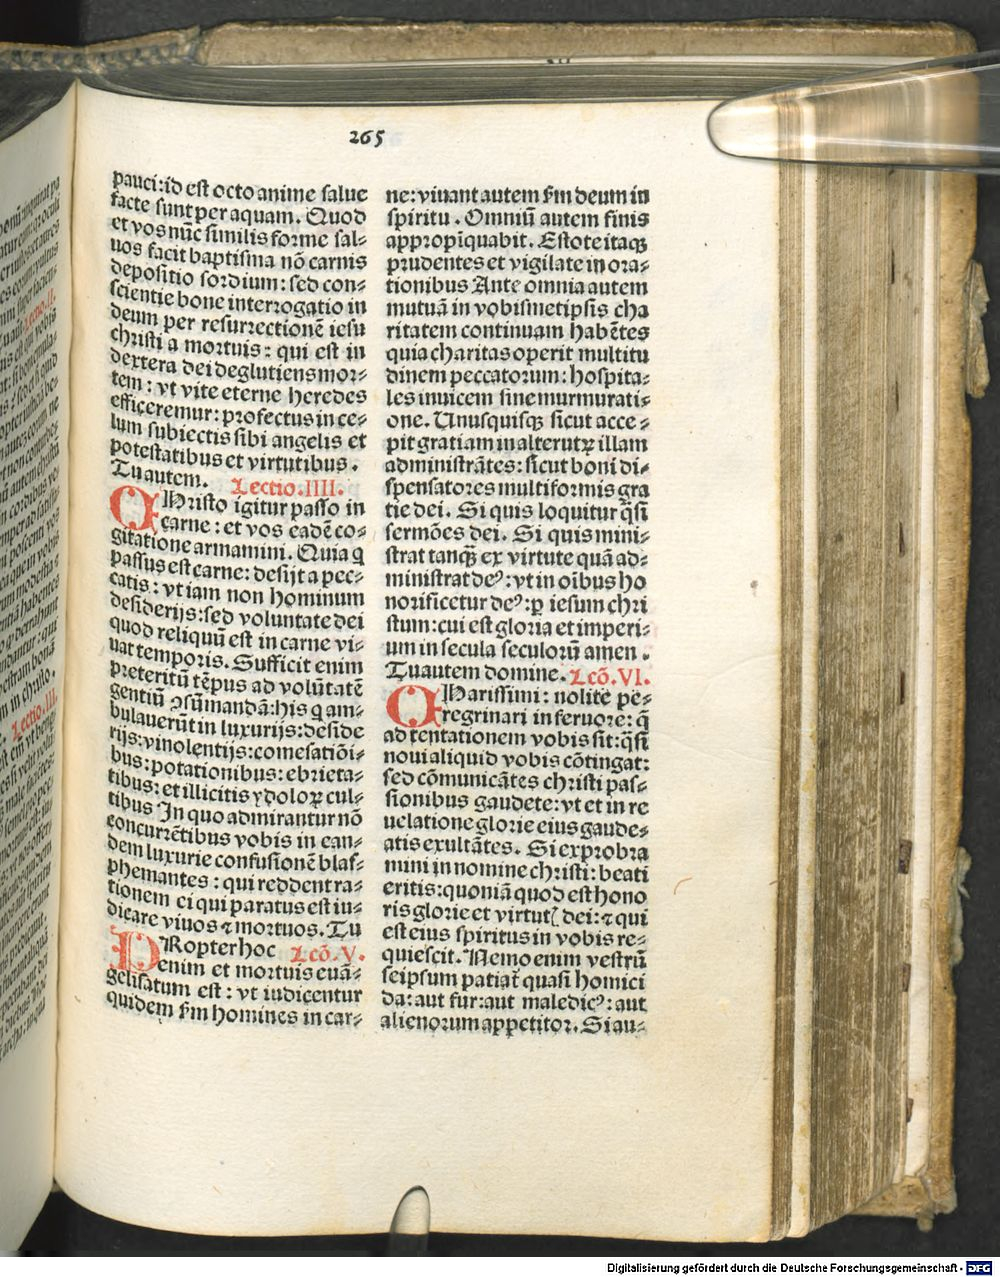 265
pauci: id est octo anime salue
facte sunt per aquam. Quod
et vos nũc similis forme sal⸗
uos facit baptisma nõ carnis
depositio sordium: sed con⸗
scientie bone interrogatio in
deum per resurrectionẽ iesu
christi a mortuis: qui est in
dextera dei deglutiens mor⸗
tem: vt vite eterne heredes
efficeremur: profectus in ce⸗
lum subiectis sibi angelis et
potestatibus et virtutibus.
Tu autem. Lectio.IIII.
CHristo igitur passo in
carne: et vos eadẽ co⸗
gitatione armamini. Quia q
passus est carne: desijt a pec⸗
catis: vt iam non hominum
desiderijs: sed voluntate dei
quod reliquũ est in carne vi⸗
uat temporis. Sufficit enim
preteritũ tẽpus ad volũtatẽ
gentiũ ꝯsũmandã: his q am⸗
bulauerũt in luxurijs: deside
rijs: vinolentijs: comesatiõi⸗
bus: potationibus: ebrieta⸗
tibus: et illicitis ydoloꝝ cul⸗
tibus In quo admirantur nõ
concurrẽtibus vobis in ean⸗
dem luxurie confusionẽ blas⸗
phemantes: qui reddent ra⸗
tionem ei qui paratus est iu⸗
dicare viuos ⁊ mortuos. Tu
PRopter hoc Lcõ.V.
enim et mortuis euã⸗
gelisatum est: vt iudicentur
quidem ẜm homines in car⸗
ne: viuant autem ẜm deum in
spiritu. Omniũ autem finis
appropĩquabit. Estote itaqꝫ
prudentes et vigilate in ora⸗
tionibus Ante omnia autem
mutuã in vobismetipsis cha
ritatem continuam habẽtes
quia charitas operit multitu
dinem peccatorum: hospita⸗
les inuicem sine murmurati⸗
one. Unusquisqꝫ sicut acce⸗
pit gratiam in alterutꝝ illam
administrãtes: sicut boni di⸗
spensatores multiformis gra
tie dei. Si quis loquitur q̃si
sermões dei. Si quis mini⸗
strat tanqꝫ ex virtute quã ad⸗
ministrat deꝰ: vt in oĩbus ho
norificetur deꝰ: ꝑ iesum chri
stum: cui est gloria et imperi⸗
um in secula seculorũ amen.
Tu autem domine. Lcõ.VI.
CHarissimi: nolite pe⸗
regrinari in feruore: q̃
ad tentationem vobis fit: q̃si
noui aliquid vobis cõtingat:
sed cõmunicãtes christi pas⸗
sionibus gaudete: vt et in re
uelatione glorie eius gaude⸗
atis exultãtes. Si exprobra
mini in nomine christi: beati
eritis: quoniã quod est hono
ris glorie et virtutꝭ dei: ⁊ qui
est eius spiritus in vobis re⸗
quiescit. Nemo enim vestrũ
seipsum patiat᷑ quasi homici
da: aut fur: aut maledicꝰ: aut
alienorum appetitor. Si au⸗
Digitalisierung gefördert durch die Deutsche Forschungsgemeinschaft - DFG